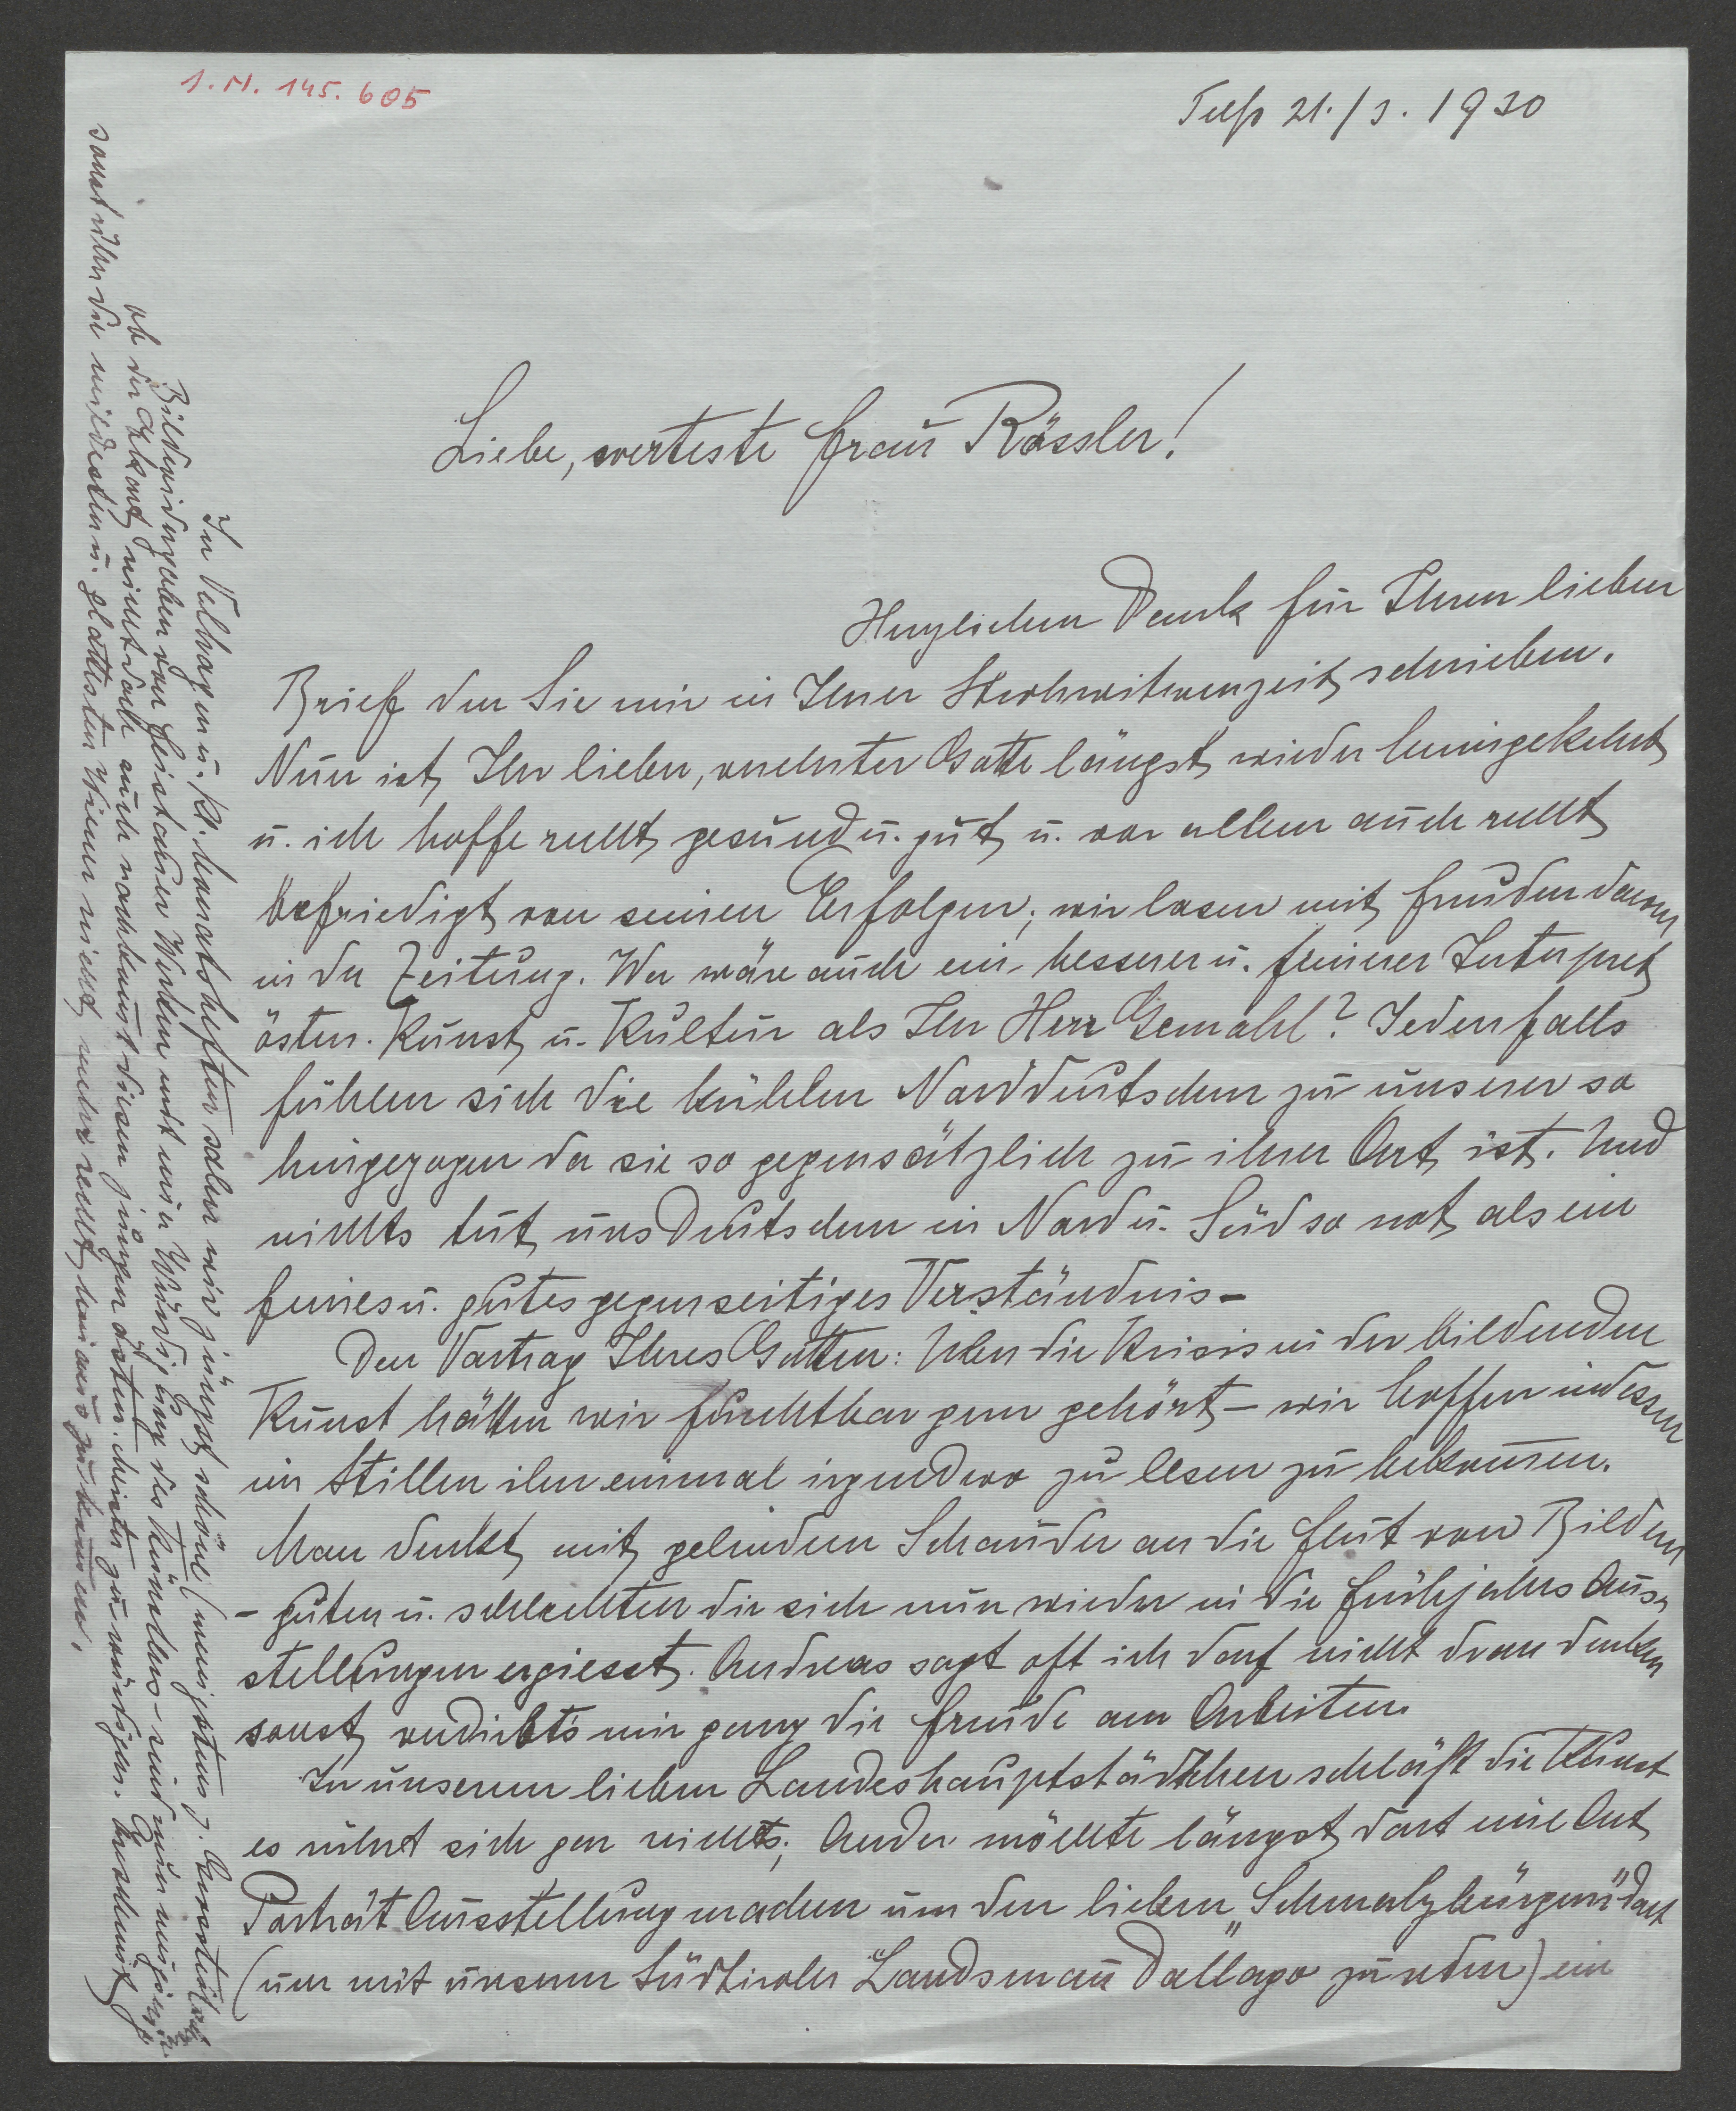 I.N. 145.605
Telfs 21./3. 1930
Liebe, werteste Frau Rössler!
Herzlichen Dank für Ihren lieben
Brief den Sie mir in Ihrer Strohwitwenzeit schrieben.
Nun ist Ihr lieber, verehrter Gatte längst wieder heimgekehrt
u. ich hoffe recht gesund u. gut u. vor allem auch recht
befriedigt von seinen Erfolgen; wir lasen mit Freuden davon
in der Zeitung. Wer wäre auch ein besserer u. feinerer Interpret
österr. Kunst u. Kultur als Ihr Herr Gemahl? Jedenfalls
fühlen sich die kühlen Norddeutschen zu unserer so
hingezogen da sie so gegensätzlich zu ihrer Art ist. Und
nichts tut uns Deutschen in Nord u. Süd so not als ein
feines u. gutes gegenseitiges Verständnis-
Den Vortrag Ihres Gatten: Über die Krisis in der bildenden
Kunst hätten wir furchtbar gern gehört – wir hoffen indessen
im Stillen ihn einmal irgendwo zu lesen zu bekommen.
Man denkt mit gelindem Schauder an die Flut von Bildern
- guten u. schlechten die sich nun wieder in die Frühjahrs Aus-
stellungen ergiesst. Andreas sagt oft ich darf nicht dran denken
sonst verdirbts mir ganz die Freude am Arbeiten.
In unserem lieben Landeshauptstädtchen schläft die Kunst
es rührt sich gar nichts; Ander möchte längst dort eine Art
Porträt Ausstellung machen um den lieben „Schmalzbürgern" dort
(um mit unserem Südtiroler Landsmann Dallago zu reden) ein
In Velhagen u. Kl. Monatsheften sahen wir jüngst schöne (wenigstens z.
Bildwiedergaben von Feistauer Werken mit einer Würdigung des Künstlers – sind nun neugierig
ob der nicht doch auch noch kommt diesen jüngen österr. Meister zu würdigen.
sonst über die mildesten u. glattesten Wiener nicht mehr recht hinaus zu kommen.